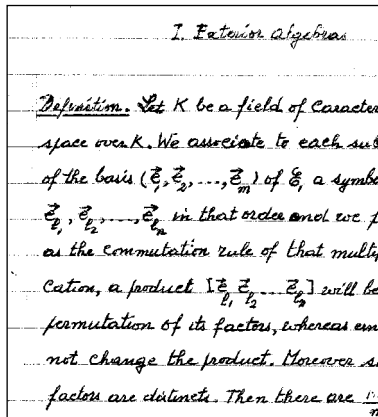 I. Exterior algebras
Definition. Let K be a field of Caracter
space over K. We associate to each sub
of the basis (ε⃗₁, ε⃗₂, ..., ε⃗ₘ) of ℰ, a symbo
ε⃗_{l₁}, ε⃗_{l₂}, ..., ε⃗_{lₙ} in that order and we p
as the commutation rule of that multi
cation, a product [ε⃗_{l₁} ε⃗_{l₂} ... ε⃗_{lₙ}] will be
permutation of its factors, whereas
not change the product. Moreover
factors are distincts. Then there are